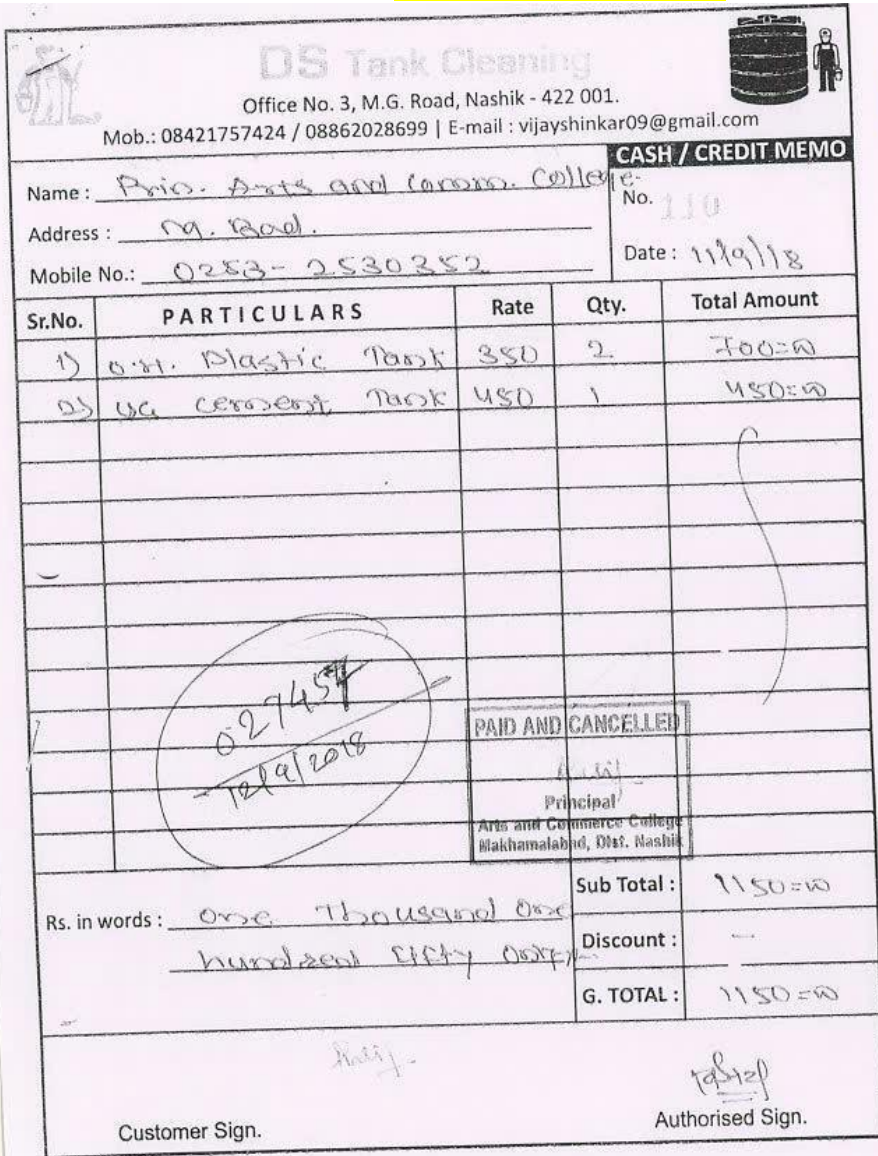 DS Tank Cleaning
Office No. 3, M.G. Road, Nashik - 422 001.
Mob.: 08421757424 / 08862028699 | E-mail : vijayshinkar09@gmail.com
CASH / CREDIT MEMO
Name : Prin. Arts and Comm. College
No. 110
Address : Road.
Date : 11/9/18
Mobile No.: 0253-2530352
Sr.No. PARTICULARS Rate Qty. Total Amount
1) O.H. Plastic Tank 350 2 700=00
2) UG cement Tank 450 1 450=00
027457
12/9/2018
PAID AND CANCELLED
Principal
Arts and Commerce College
Makhamalabad, Dist. Nashik
Sub Total : 1150=00
Rs. in words : One Thousand One
hundred fifty only
Discount : -
G. TOTAL : 1150=00
Customer Sign.
Authorised Sign.